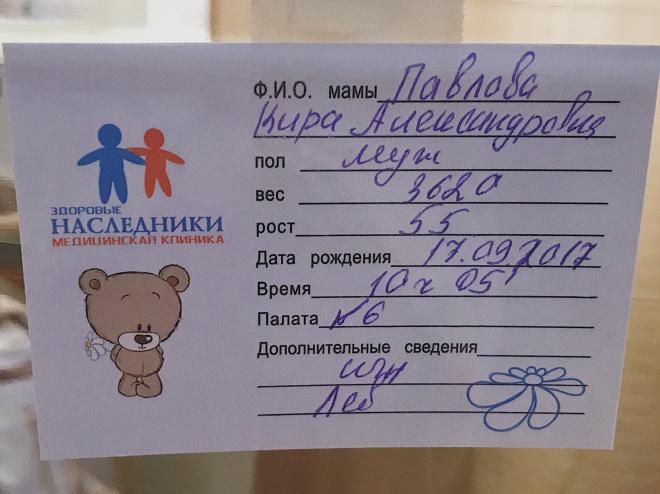 Ф.И.О. мамы Павлова
Кира Александровна
пол муж
вес 3620
рост 55
Дата рождения 17.09.2017
Время 10ч 05'
Палата №6
Дополнительные сведения
ЗДОРОВЫЕ
НАСЛЕДНИКИ
МЕДИЦИНСКАЯ КЛИНИКА